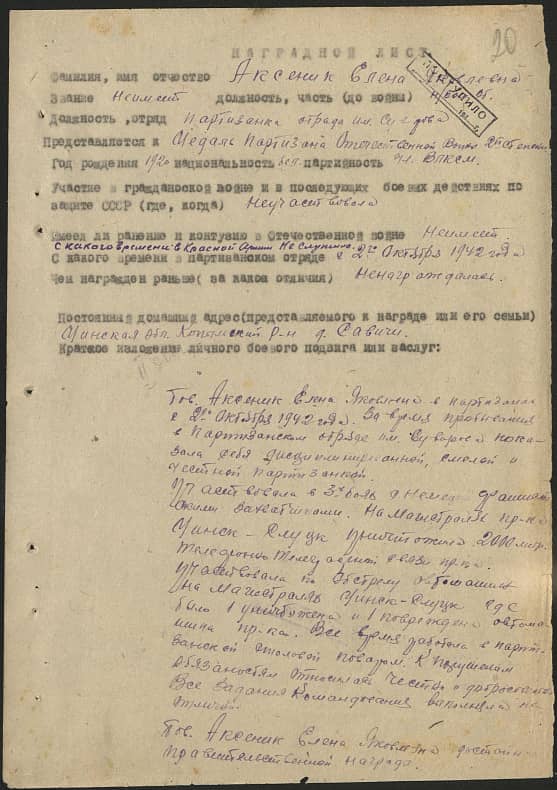 20
НАГРАДНОЙ ЛИСТ
ПОСТУПИЛО
Фамилия, имя отчество Аксеник Елена Яковлевна
Звание Неимеет должность, часть (до войны)
Должность, отряд Партизанка отряда им. Суворова
Представляется к Медаль Партизана Отечественной Войны 2й степени
Год рождения 1920 национальность бел. партийность чл. ВЛКСМ.
Участие в гражданской войне и в последующих боевых действиях по
защите СССР (где, когда) Неучаствовала
Имеел ли ранение и контузию в Отечественной войне Неимеет.
С какого времени в Красной Армии Не служила.
С какого времени в партизанском отряде с 2го Октября 1942 года
Чем награжден раньше( за какие отличия) Ненаграждалась.
Постоянный домашний адрес(представляемого к награде или его семьи)
Минская обл. Копыльский р-н д. Савичи.
Краткое изложение личного боевого подвига или заслуг:
Тов. Аксеник Елена Яковлевна в партизанах
с 2го Октября 1942 года. За время пребывания
в Партизанском отряде им. Суворова пока-
зала себя дисциплинированной, смелой и
честной партизанкой.
Участвовала в 3х боях с немецко фашист-
скими захватчиками. На магистрале пр-ка
Минск - Слуцк уничтожила 2000 метр.
телефонно телеграфной связи пр-ка.
Участвовала по обстрелу автомашин
на магистрале Минск-Слуцк где
было 1 уничтожена и 1 повреждена автома-
шина пр-ка. Все время работала в парти-
занской столовой поваром. К порученным
обязаностям относилась честно и добросовестно
Все задания Командования выполняла на
отлично.
Тов. Аксеник Елена Яковлевна достойна
правительственной награда.